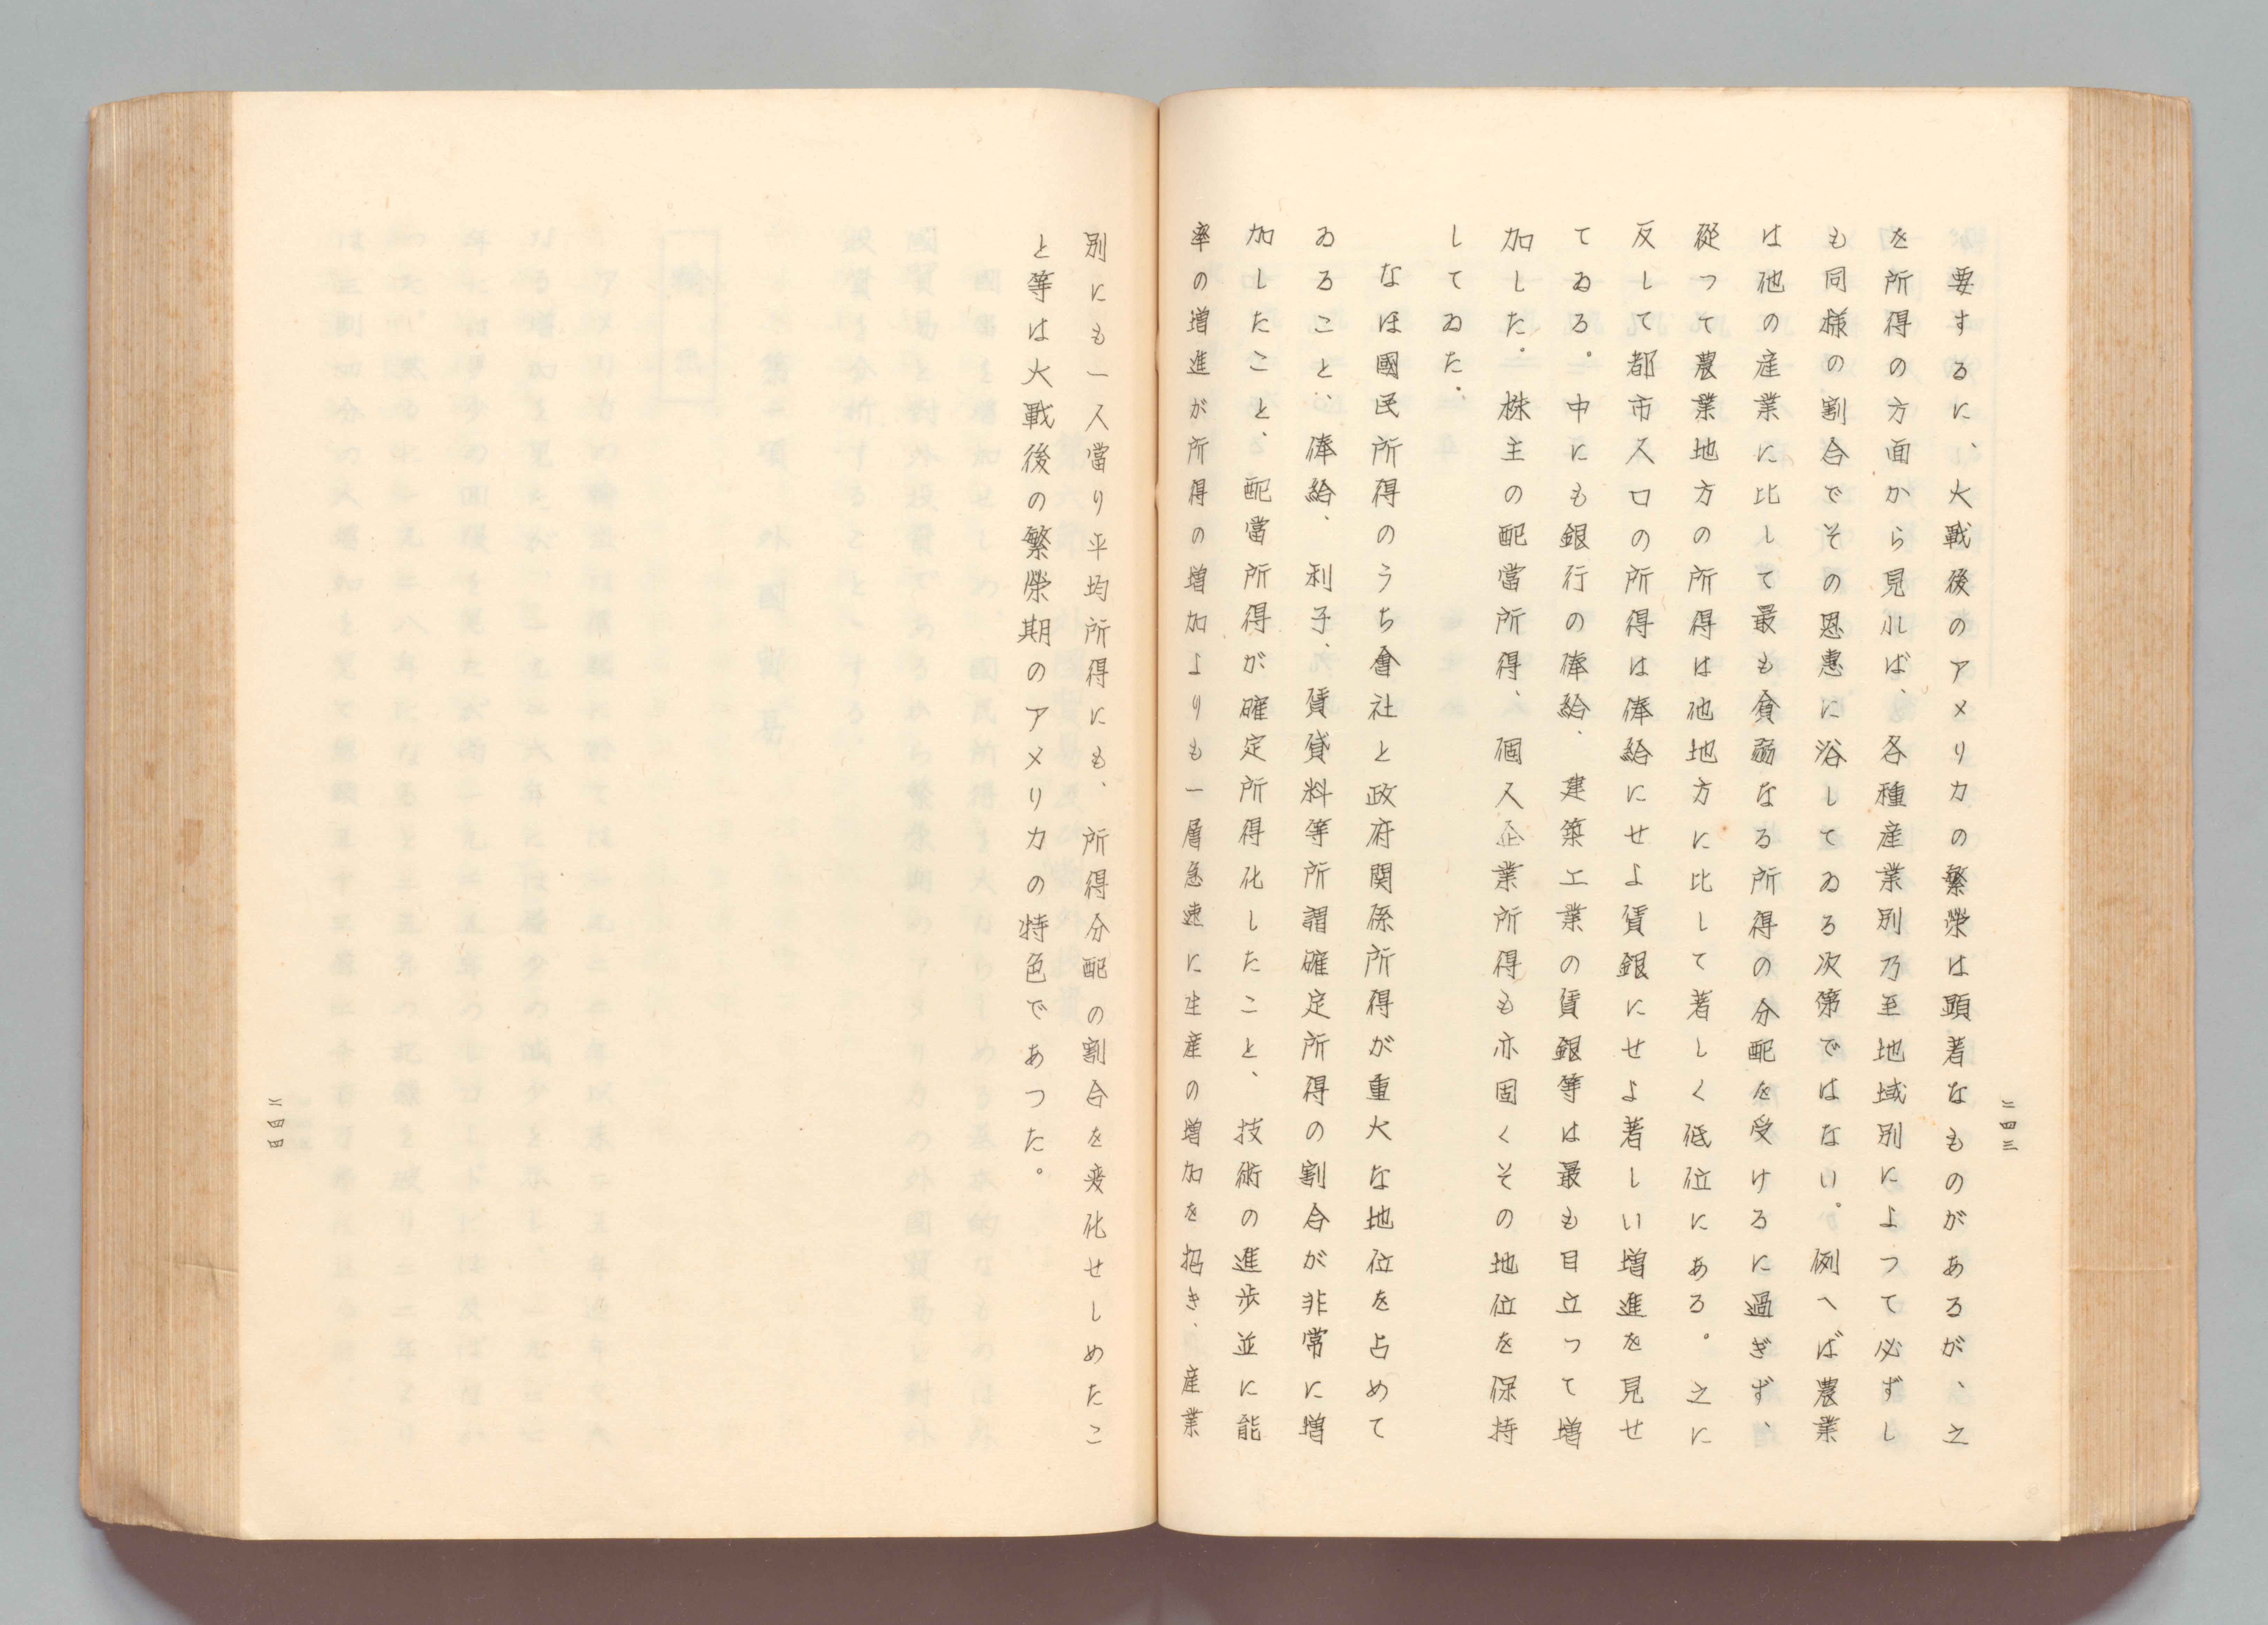 二四三
要するに、大戰後のアメリカの繁榮は顕著なものがあるが、之
を所得の方面から見れば、各種産業別乃至地域別によつて必ずし
も同様の割合でその恩惠に浴してゐる次第ではない。例へば農業
は他の産業に比して最も貧弱なる所得の分配を受けるに過ぎず、
從つて農業地方の所得は他地方に比して著しく低位にある。之に
反して都市人口の所得は俸給にせよ賃銀にせよ著しい増進を見せ
てゐる。中にも銀行の俸給、建築工業の賃銀等は最も目立つて増
加した。株主の配當所得、個人企業所得も亦固くその地位を保持
してゐた。
なほ國民所得のうち會社と政府関係所得が重大な地位を占めて
ゐること、俸給、利子、賃貸料等所謂確定所得の割合が非常に増
加したこと、配當所得が確定所得化したこと、技術の進歩並に能
率の増進が所得の増加よりも一層急速に生産の増加を招き、産業
別にも一人當り平均所得にも、所得分配の割合を変化せしめたこ
と等は大戰後の繁榮期のアメリカの特色であつた。
二四四